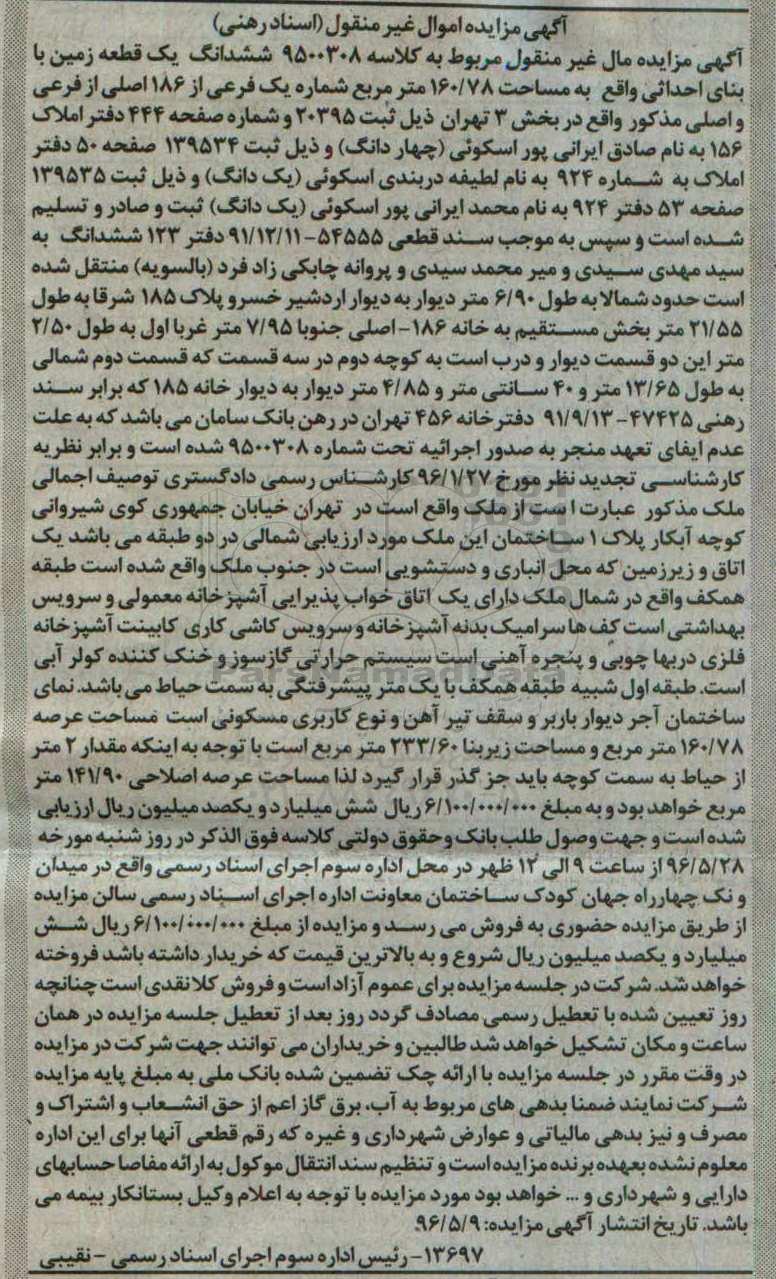 آگهی مزایده اموال غیر منقول (اسناد رهنی)
آگهی مزایده مال غیر منقول مربوط به کلاسه ۹۵۰۰۳۰۸ ششدانگ یک قطعه زمین با
بنای احداثی واقع به مساحت ۱۶۰/۷۸ متر مربع شماره یک فرعی از ۱۸۶ اصلی از فرعی
و اصلی مذکور واقع در بخش ۳ تهران ذیل ثبت ۲۰۳۹۵ و شماره صفحه ۴۴۴ دفتر املاک
۱۵۶ به نام صادق ایرانی پور اسکوئی (چهار دانگ) و ذیل ثبت ۱۳۹۵۳۴ صفحه ۵۰ دفتر
املاک به شماره ۹۲۴ به نام لطیفه دربندی اسکوئی (یک دانگ) و ذیل ثبت ۱۳۹۵۳۵
صفحه ۵۳ دفتر ۹۲۴ به نام محمد ایرانی پور اسکوئی (یک دانگ) ثبت و صادر و تسلیم
شده است و سپس به موجب سند قطعی ۵۴۵۵۵-۹۱/۱۲/۱۱ دفتر ۱۲۳ ششدانگ به
سید مهدی سیدی و میر محمد سیدی و پروانه چابکی زاد فرد (بالسویه) منتقل شده
است حدود شمالا به طول ۶/۹۰ متر دیوار به دیوار اردشیر خسرو پلاک ۱۸۵ شرقا به طول
۲۱/۵۵ متر بخش مستقیم به خانه ۱۸۶-اصلی جنوبا ۷/۹۵ متر غربا اول به طول ۲/۵۰
متر این دو قسمت دیوار و درب است به کوچه دوم در سه قسمت که قسمت دوم شمالی
به طول ۱۳/۶۵ متر و ۴۰ سانتی متر و ۴/۸۵ متر دیوار به دیوار خانه ۱۸۵ که برابر سند
رهنی ۴۷۴۲۵-۹۱/۹/۱۳ دفترخانه ۴۵۶ تهران در رهن بانک سامان می باشد که به علت
عدم ایفای تعهد منجر به صدور اجرائیه تحت شماره ۹۵۰۰۳۰۸ شده است و برابر نظریه
کارشناسی تجدید نظر مورخ ۹۶/۱/۲۷ کارشناس رسمی دادگستری توصیف اجمالی
ملک مذکور عبارت است از ملک واقع است در تهران خیابان جمهوری کوی شیروانی
کوچه آبکار پلاک ۱ ساختمان این ملک مورد ارزیابی شمالی در دو طبقه می باشد یک
اتاق و زیرزمین که محل انباری و دستشویی است در جنوب ملک واقع شده است طبقه
همکف واقع در شمال ملک دارای یک اتاق خواب پذیرایی آشپزخانه معمولی و سرویس
بهداشتی است کف ها سرامیک بدنه آشپزخانه و سرویس کاشی کاری کابینت آشپزخانه
فلزی دربها چوبی و پنجره آهنی است سیستم حرارتی گازسوز و خنک کننده کولر آبی
است. طبقه اول شبیه طبقه همکف با یک متر پیشرفتگی به سمت حیاط می باشد. نمای
ساختمان آجر دیوار باربر و سقف تیر آهن و نوع کاربری مسکونی است مساحت عرصه
۱۶۰/۷۸ متر مربع و مساحت زیربنا ۲۳۳/۶۰ متر مربع است با توجه به اینکه مقدار ۲ متر
از حیاط به سمت کوچه باید جز گذر قرار گیرد لذا مساحت عرصه اصلاحی ۱۴۱/۹۰ متر
مربع خواهد بود و به مبلغ ۶/۱۰۰/۰۰۰/۰۰۰ ریال شش میلیارد و یکصد میلیون ریال ارزیابی
شده است و جهت وصول طلب بانک وحقوق دولتی کلاسه فوق الذکر در روز شنبه مورخه
۹۶/۵/۲۸ از ساعت ۹ الی ۱۲ ظهر در محل اداره سوم اجرای اسناد رسمی واقع در میدان
و نک چهارراه جهان کودک ساختمان معاونت اداره اجرای اسناد رسمی سالن مزایده
از طریق مزایده حضوری به فروش می رسد و مزایده از مبلغ ۶/۱۰۰/۰۰۰/۰۰۰ ریال شش
میلیارد و یکصد میلیون ریال شروع و به بالاترین قیمت که خریدار داشته باشد فروخته
خواهد شد. شرکت در جلسه مزایده برای عموم آزاد است و فروش کلا نقدی است چنانچه
روز تعیین شده با تعطیل رسمی مصادف گردد روز بعد از تعطیل جلسه مزایده در همان
ساعت و مکان تشکیل خواهد شد طالبین و خریداران می توانند جهت شرکت در مزایده
در وقت مقرر در جلسه مزایده با ارائه چک تضمین شده بانک ملی به مبلغ پایه مزایده
شرکت نمایند ضمنا بدهی های مربوط به آب، برق گاز اعم از حق انشعاب و اشتراک و
مصرف و نیز بدهی مالیاتی و عوارض شهرداری و غیره که رقم قطعی آنها برای این اداره
معلوم نشده بعهده برنده مزایده است و تنظیم سند انتقال موکول به ارائه مفاصا حسابهای
دارایی و شهرداری و ... خواهد بود مورد مزایده با توجه به اعلام وکیل بستانکار بیمه می
باشد. تاریخ انتشار آگهی مزایده: ۹۶/۵/۹
۱۳۶۹۷- رئیس اداره سوم اجرای اسناد رسمی - نقیبی